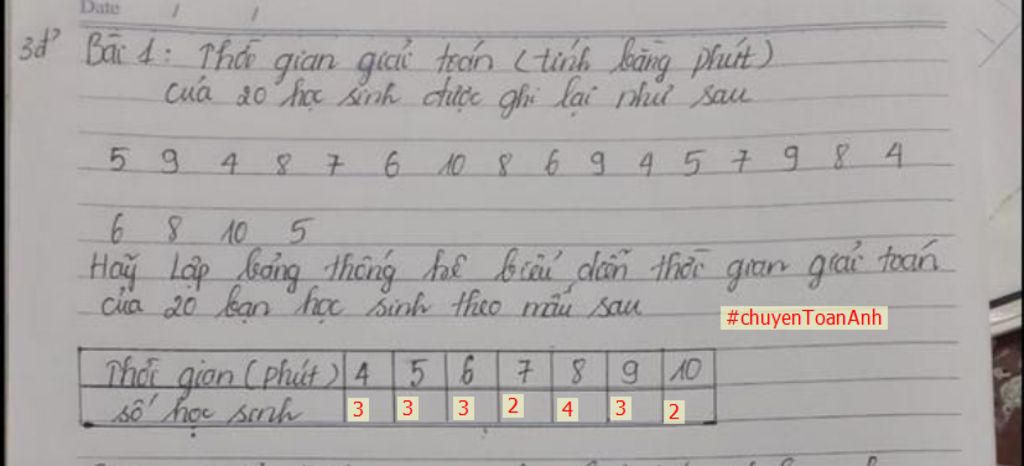 Date / /
3đ? Bài 1: Thời gian giải toán (tính bằng phút)
của 20 học sinh được ghi lại như sau
5 9 4 8 7 6 10 8 6 9 4 5 7 9 8 4
6 8 10 5
Hãy Lập bảng thống kê biểu diễn thời gian giải toán
của 20 bạn học sinh theo mẫu sau
#chuyenToanAnh
Thời gian (phút) 4 5 6 7 8 9 10
số học sinh 3 3 3 2 4 3 2